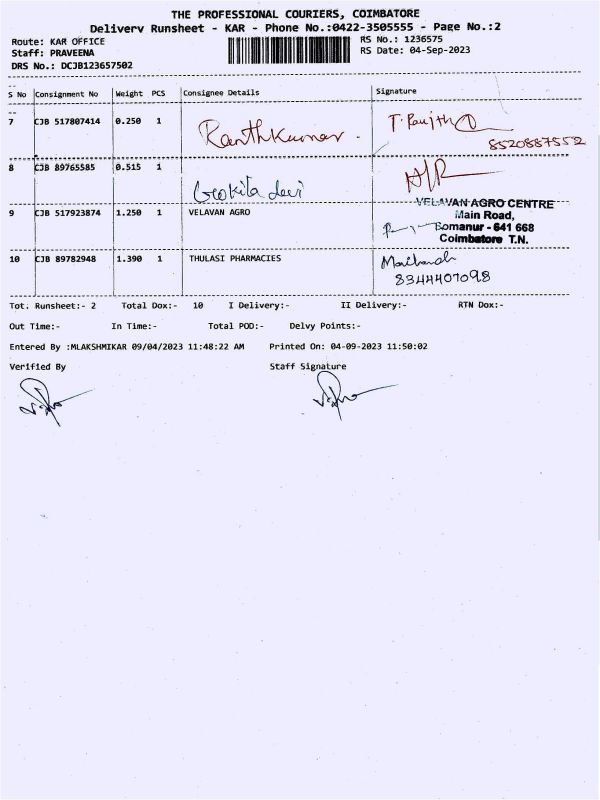 THE PROFESSIONAL COURIERS, COIMBATORE
Delivery Runsheet - KAR - Phone No.:0422-3505555 - Page No.:2
Route: KAR OFFICE
RS No.: 1236575
Staff: PRAVEENA
RS Date: 04-Sep-2023
DRS No.: DCJB123657502
S No Consignment No Weight PCS Consignee Details Signature
7 CJB 517807414 0.250 1 RanthKumar. T. Ranjith
8520887552
8 CJB 89765585 0.515 1 Gokila devi A/R
9 CJB 517923874 1.250 1 VELAVAN AGRO
VELAVAN AGRO CENTRE
Main Road,
Bomanur - 641 668
Coimbatore T.N.
10 CJB 89782948 1.390 1 THULASI PHARMACIES
8344407098
Tot. Runsheet:- 2 Total Dox:- 10 I Delivery:- II Delivery:- RTN Dox:-
Out Time:- In Time:- Total POD:- Delvy Points:-
Entered By :MLAKSHMIKAR 09/04/2023 11:48:22 AM Printed On: 04-09-2023 11:50:02
Verified By Staff Signature